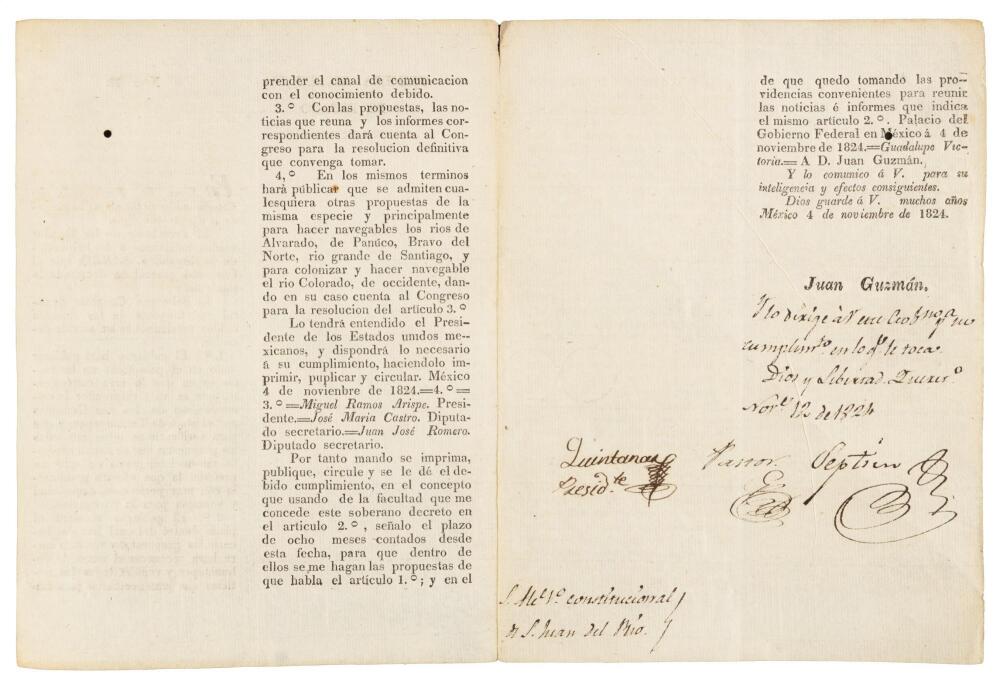 prender el canal de comunicacion
con el conocimiento debido.
3.º Con las propuestas, las no-
ticias que reuna y los informes cor-
respondientes dará cuenta al Con-
greso para la resolucion definitiva
que convenga tomar.
4,º En los mismos terminos
hará públicar que se admiten cua-
lesquiera otras propuestas de la
misma especie y principalmente
para hacer navegables los rios de
Alvarado, de Panúco, Bravo del
Norte, rio grande de Santiago, y
para colonizar y hacer navegable
el rio Colorado, de occidente, dan-
do en su caso cuenta al Congreso
para la resolucion del artículo 3.º
Lo tendrá entendido el Presi-
dente de los Estados unidos me-
xicanos, y dispondrá lo necesario
á su cumplimiento, haciendolo im-
primir, puplicar y circular. México
4 de novienbre de 1824.=4.º=
3.º=Miguel Ramos Arispe. Presi-
dente.=José Maria Castro. Diputa-
do secretario.=Juan José Romero.
Diputado secretario.
Por tanto mando se imprima,
publique, circule y se le dé el de-
bido cumplimiento, en el concepto
que usando de la facultad que me
concede este soberano decreto en
el articulo 2.º, señalo el plazo
de ocho meses contados desde
esta fecha, para que dentro de
ellos se me hagan las propuestas de
que habla el artículo 1.º; y en el
de que quedo tomando las pro-
videncias convenientes para reunir
las noticias é informes que indica
el mismo articulo 2.º. Palacio del
Gobierno Federal en México á 4 de
noviembre de 1824.=Guadalupe Vic-
toria.=A D. Juan Guzmán.
Y lo comunico á V. para su
inteligencia y efectos consiguientes.
Dios guarde á V. muchos años
México 4 de noviembre de 1824.
Juan Guzmán.
Y lo dirige à V este Gob.no pa su
cumplim.to en lo q.e le toca.
Dios y Libertad. Querer.o
Nov.e 12 de 1824
Quintanar
Presid.te
Pastor.
Septien
S. Alc.e 1.o constitucional
de S. Juan del Rio.